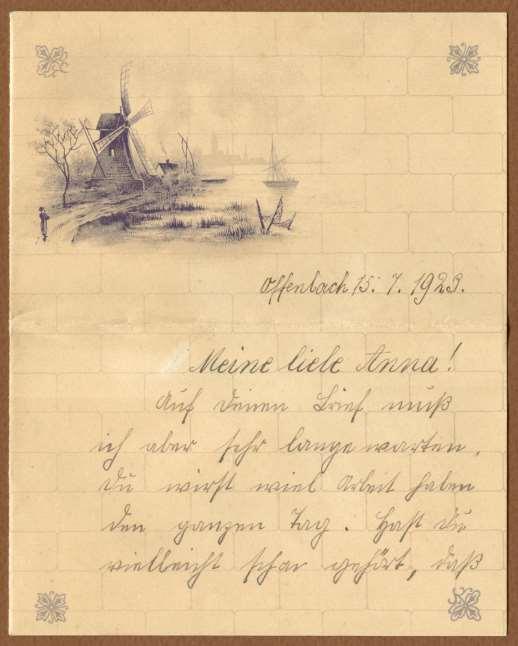 Offenbach 15. 7. 1923.
Meine liebe Anna!
Auf deinen Brief muß
ich aber sehr lange warten,
du wirst wiel Arbeit haben
den ganzen Tag. Hast du
vielleicht schon gehört, daß